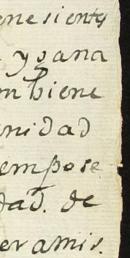 ene siente
y sana
mbiene
nidad
empose
dad. de
eramis.